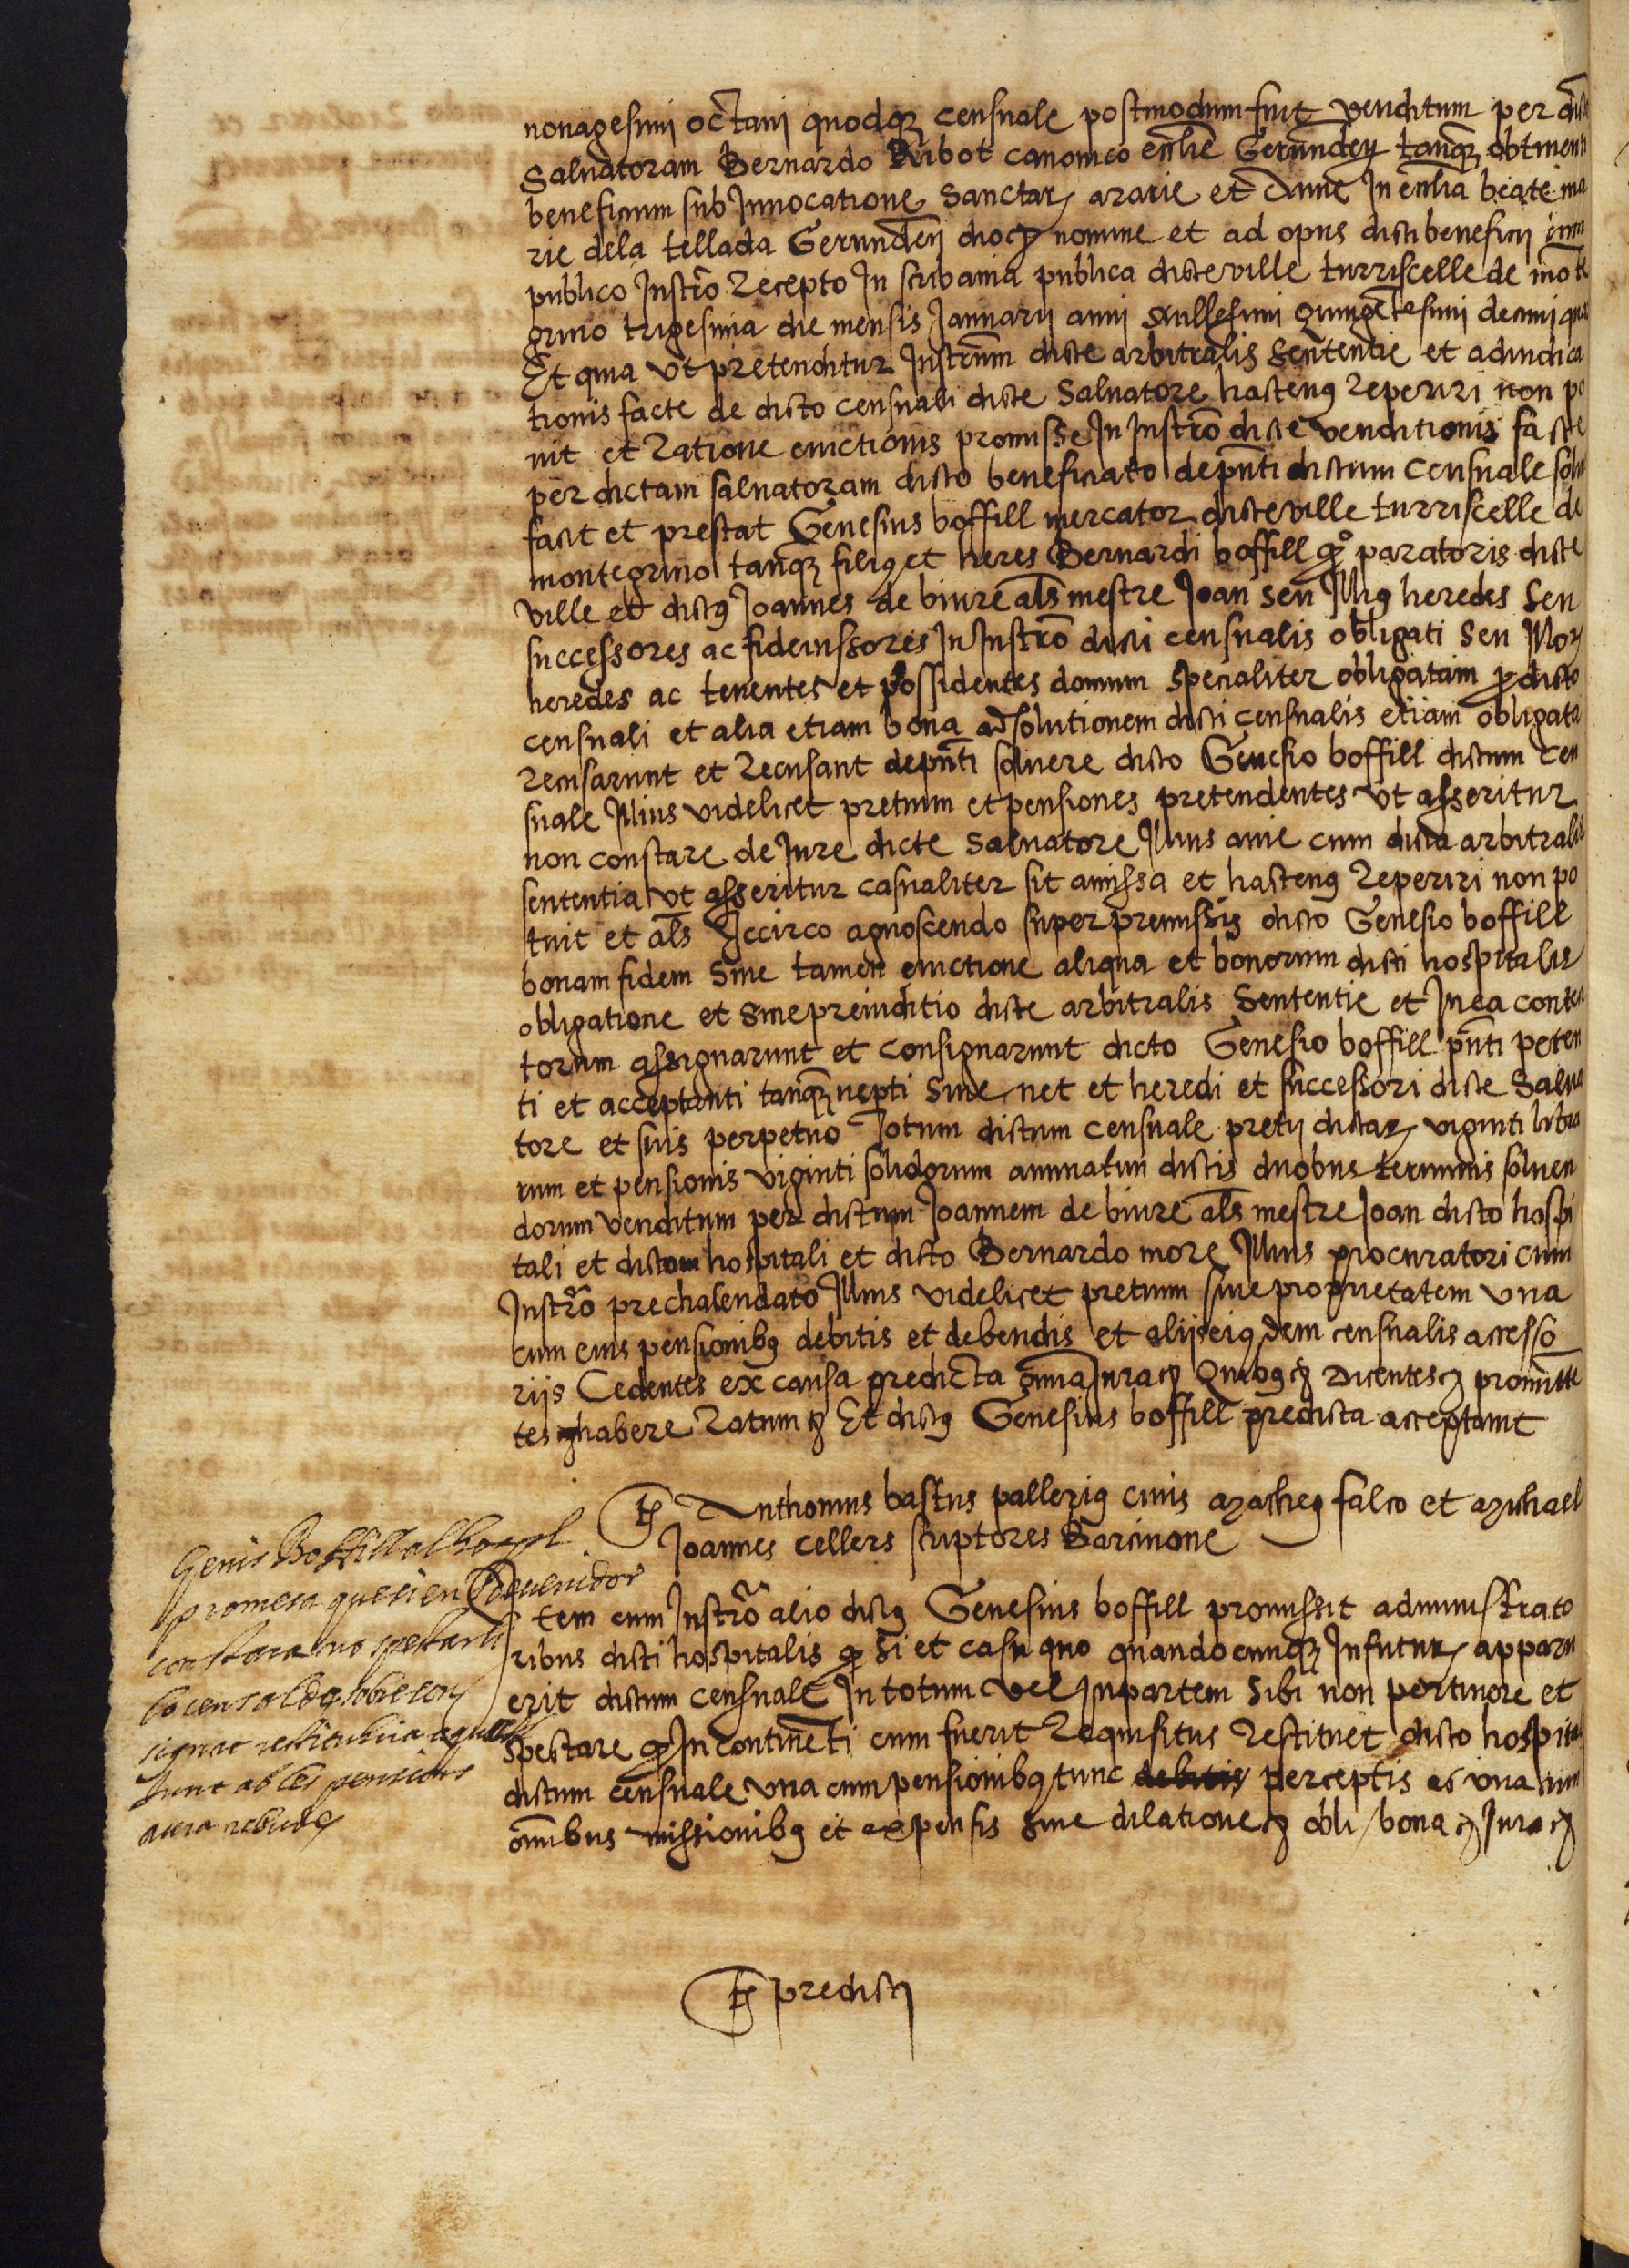 nonagesimi octavi quodq3 censuale postmodum fuit venditum per dict
Salvatoram Bernardo Ribot canonico ecclie Gerunden tanq3 obtinenti
beneficium sub Invocatione Sanctar Marie et Anne In ecclia beate ma
rie dela tellada Gerunden dioc nomine et ad opus dicti beneficij cum
publico Instro Recepto In scribania publica dicte ville turriscelle de mote
grino trigesima die mensis Januarij anni Millesimi quingetesimi decimi
Et quia vt pretenditur Instrum dicte arbitralis Sententie et adiudica
tionis facte de dicto censuali dicte Salvatore hactenus Reperiri non po
uit et Ratione evictionis promisse In Instro dicte venditionis facte
per dictam salvatoram dicto beneficiato depnti dictum censuale
facit et prestat Genesius boffill mercator dicte ville turriscelle de
montegrino tanq3 filius et heres Bernardi boffill qo paratoris dicte
ville et dictus Joannes de biure als mestre Joan seu Illius heredes seu
successores ac fideiussores In Instro dicti censualis obligati seu Illor
heredes ac tenentes et possidentes domum specialiter obligatam p dicto
censuali et alia etiam bona ad solutionem dicti censualis etiam obligata
recusarunt et Recusant depnti solvere dicto Genesio boffill dictum cen
suale Illius videlicet pretium et pensiones pretendentes vt asseritur
non constare de Jure dicte Salvatore Illius avie cum dicta arbitralis
sententia vt asseritur casualiter sit amissa et hactenus Reperiri non po
tuit et als Iccirco agnoscendo super premissis dicto Genesio boffill
bonam fidem Sine tamen evictione aliqua et bonorum dicti hospitalis
obligatione et Sine preiuditio dicte arbitralis Sententie et In ea conten
torum assignarunt et consignarunt dicto Genesio boffill pnti peten
ti et acceptanti tanq3 nepti Sive net et heredi et successori dicte Salva
tore et suis perpetuo Totum dictum censuale pretij dictar viginti libra
rum et pensionis viginti solidorum annuatim dictis duobus terminis solven
dorum venditum per dictum Joannem de biure als mestre Joan dicto hospi
tali et dictom hospitali et dicto Bernardo more Illius procuratori cum
Instro prechalendato Illius videlicet pretium sive proprietatem vna
cum eius pensionibus debitis et debendis et alijs eiusdem censualis accesso
rijs Cedentes ex causa predicta omia Jura &c Quibus &c Dicentes &c promitte
tes &c habere Ratum &c Et dictus Genesius boffill predicta acceptavit
Ts Anthonius bastus pallerius civis Matheus falco et Michael
Joannes cellers scriptores Barcinone
Item cum Instro alio dictus Genesius boffill promissit administrato
ribus dicti hospitalis q si et casu quo quandocunq3 In futur apparu
erit dictum censuale In totum vel In partem Sibi non pertinere et
spectare q Incontineti cum fuerit Requisitus Restituet dicto hospita
dictum censuale vna cum pensionibus tunc debitis perceptis et vna cum
omibus missionibus et expensis sine dilatione &c obli / bona &c Jura &c
Ts predicti
Genis Boffill al hospl
promera que si en sdevenidor
constara no spectarli
lo censal &c sobre con
signat restituira aquell
Junt ab les pensions
aura rebudes